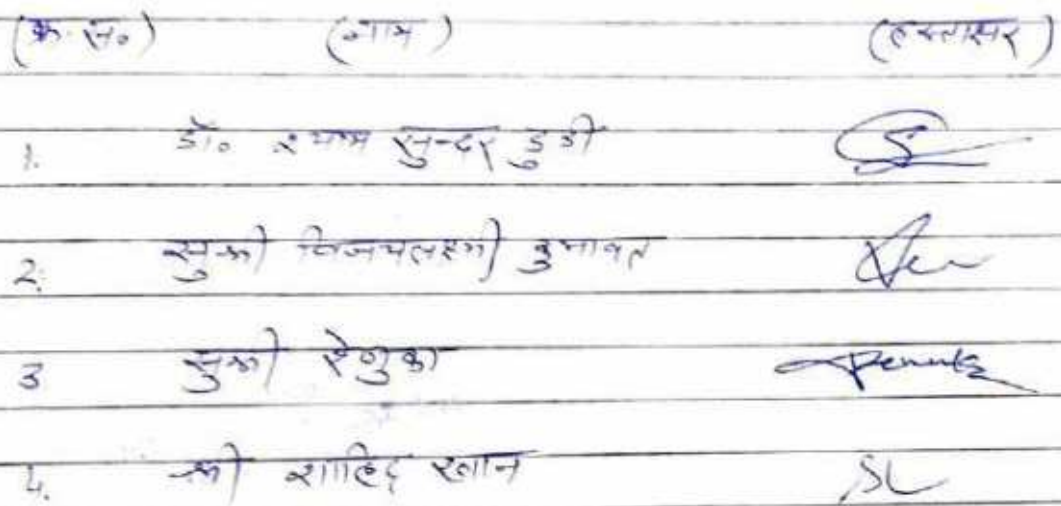 (क्र. स०) (नाम) (हस्ताक्षर)
1. डॉ. श्याम सुन्दर डुडी
2. सुश्री विजयलक्ष्मी कुमावत
3 सुश्री रेणुका Renuka
4. श्री शाहिद खान